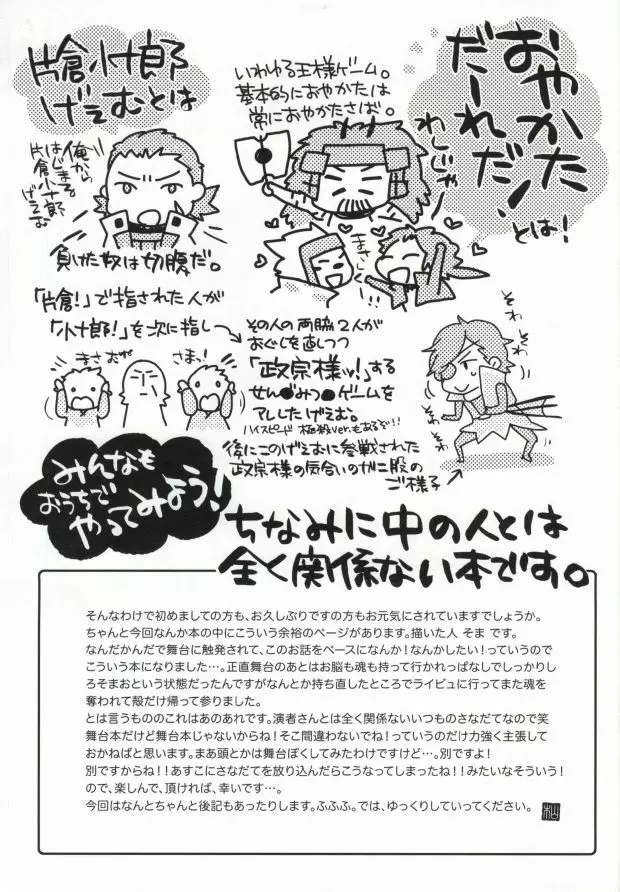 おやかた
だーれだ!
とは!
わしじゃー
いわゆる王様ゲーム。
基本的におやかたは
常におやかたさば。
まさむ
くし!!
片倉小十郎
げえむとは
俺から
はじまる
片倉小十郎
げえむ
負けた奴は切腹だ。
「片倉!」で指された人が
「小十郎!」を次に指し
その人の両脇2人が
おぐしを直しつつ
「政宗様ッ!」する
せん●みつ●ゲームを
アレしたげえむ。
ハイスピード 極殺ver.もあるぞ!!
まさむね
さまっ!
そわ
そわ
そわ
そわ
後にこのげえむに参戦された
政宗様の気合いのガニ股の
ご様子
みんなも
おうちで
やってみよう!
ちなみに中の人とは
全く関係ない本です。
そんなわけで初めましての方も、お久しぶりですの方もお元気にされていますでしょうか。
ちゃんと今回なんか本の中にこういう余裕のページがあります。描いた人 そま です。
なんだかんだで舞台に触発されて、このお話をベースになんか!なんかしたい!っていうので
こういう本になりました…。正直舞台のあとはお脳も魂も持って行かれっぱなしでしっかりし
ろそまおという状態だったんですがなんとか持ち直したところでライビュに行ってまた魂を
奪われて殻だけ帰って参りました。
とは言うもののこれはあのあれです。演者さんとは全く関係ないいつものさなだてなので笑
舞台本だけど舞台本じゃないからね!そこ間違わないでね!っていうのだけ力強く主張して
おかねばと思います。まあ頭とかは舞台ぽくしてみたわけですけど…。別ですよ!
別ですからね!!あすこにさなだてを放り込んだらこうなってしまったね!!みたいなそういう!
ので、楽しんで、頂ければ、幸いです…。
今回はなんとちゃんと後記もあったりします。ふふふ。では、ゆっくりしていってください。